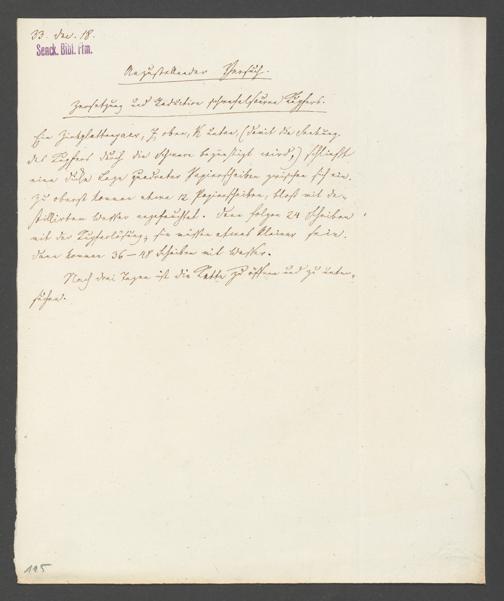 33. Dec. 18.
Senck. Bibl. Ffm.
Anzustellender Versuch.
Zersetzung und Reduction schwefelsauren Kupfers.
Ein Zinkplattenpaar, Z oben, K unten, (damit die Senkung
des Kupfers durch die Schwere begünstigt wird,) schliesst
eine dicke Lage genässter Papierscheiben zwischen sich ein.
Zu oberst kommen etwa 12 Papierscheiben, bloß mit de-
stillirtem Wasser angefeuchtet. Dann folgen 24 Scheiben
mit der Kupferlösung; sie müssen etwas kleiner sein.
Dann kommen 36–48 Scheiben mit Wasser.
Nach drei Tagen ist die Kette zu öffnen und zu unter-
suchen.
115